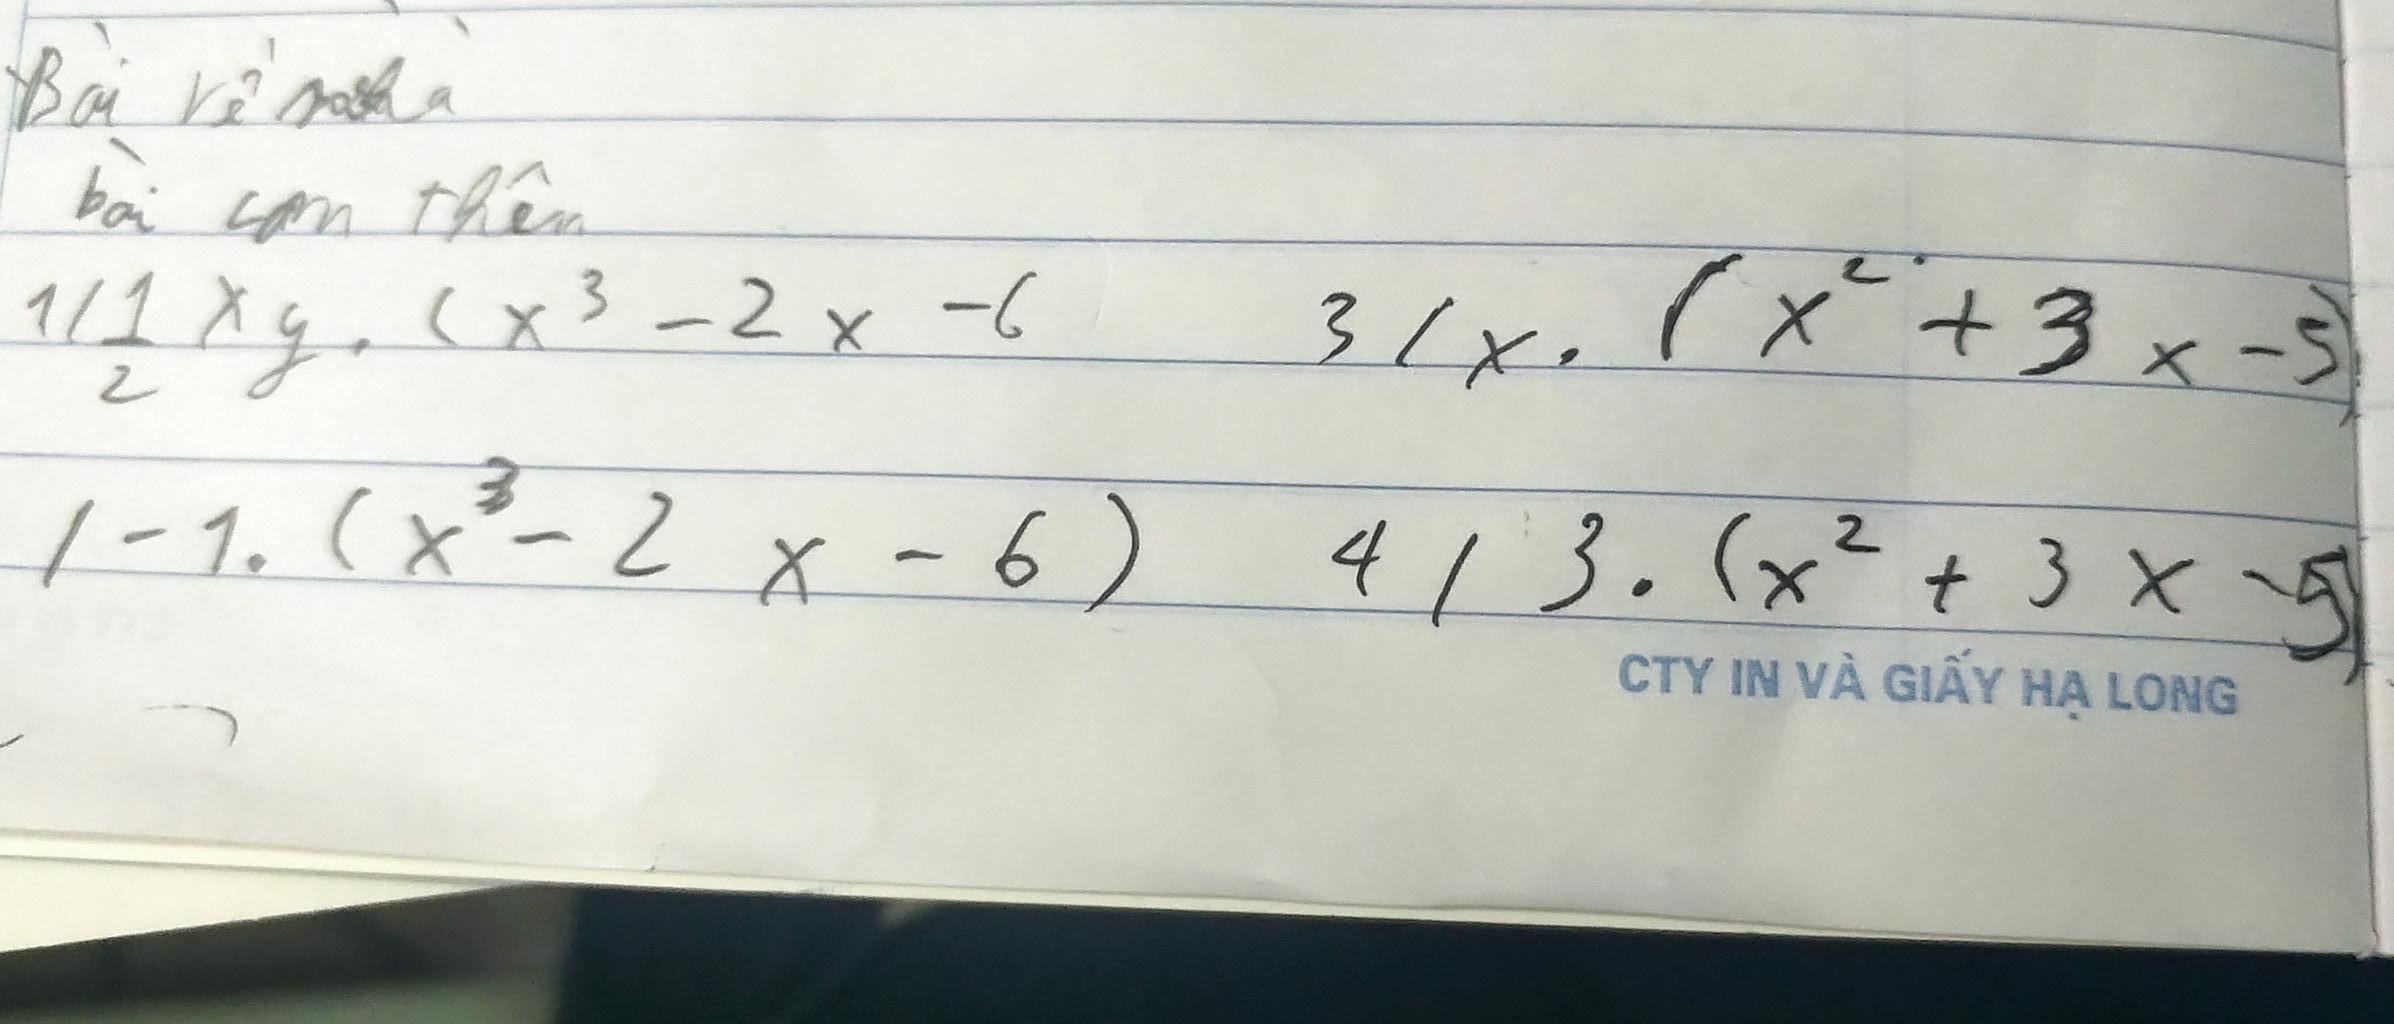 Bài về nhà
bài cơn thên
1/ 1/2 xy . (x³ - 2x - 6
3/ x . (x² + 3x - 5)
/ -1 . (x³ - 2x - 6)
4/ 3 . (x² + 3x - 5)
CTY IN VÀ GIẤY HẠ LONG